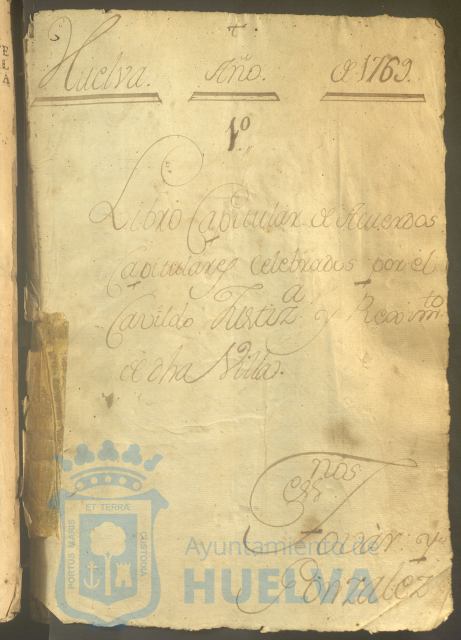 Huelva. Año. de 1769.
1.º
Libro Capitular de Acuerdos
Capitulares celebrados por el
Cavildo Justiz.ª y Regim.to
de dha Villa.
Ess.nos
Tovar y
Gonzalez
PORTUS MARIS
ET TERRÆ
CUSTODIA
Ayuntamiento de
HUELVA